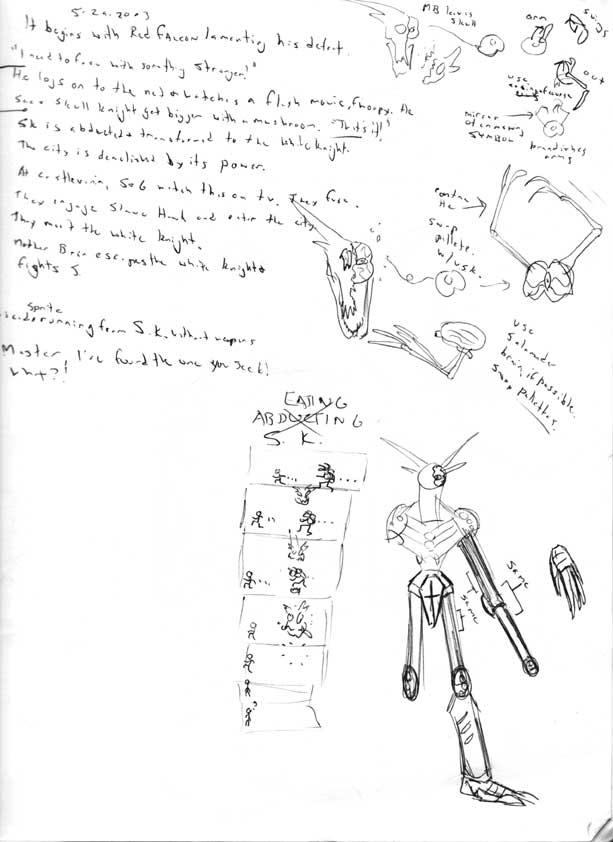 5.29.2003
It begins with Red FALCON lamenting his defeat.
"I need to fuse with something Stronger!"
He logs on to the net & watches a flash movie, He
Skull Knight get bigger with a mushroom. "That's it!"
SK is abducted & transformed to the White Knight.
The city is demolished by its power.
At castlevania, S & G watch this on tv. They fuse.
They engage Slave Hawk and enter the city
They meet the white Knight.
Mother Brain escapes the white Knight &
fights S
sprite
running from S.K. without weapons
Master, I've found the one you seek!
What?!
MB
skull
arm
swings
out
use
mirror
of
SYMBOL
brandishes
arms
swap
pallete
w/ USK.
use
Salamander
brain, if possible.
Swap pallettes.
EATING
ABDUCTING
S. K.
same
same